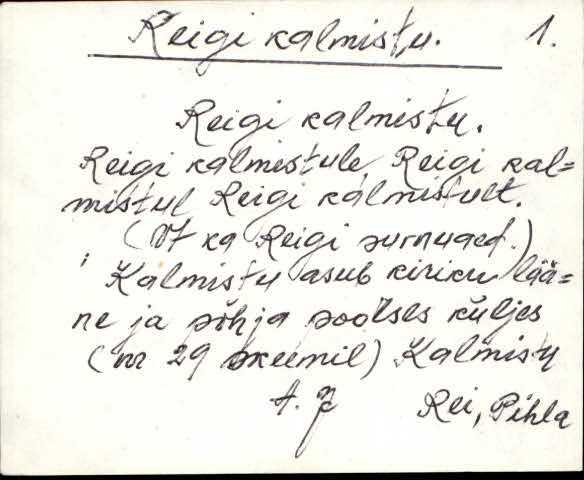 Reigi kalmistu. 1.
Reigi kalmistu.
Reigi kalmistule, Reigi kal=
mistul Reigi kalmistult.
(Vt ka Reigi surnuaed.)
Kalmistu asub kiriku lää=
ne ja põhja poolses küljes
(nr 29 skeemil) Kalmistu
Rei, Pihla